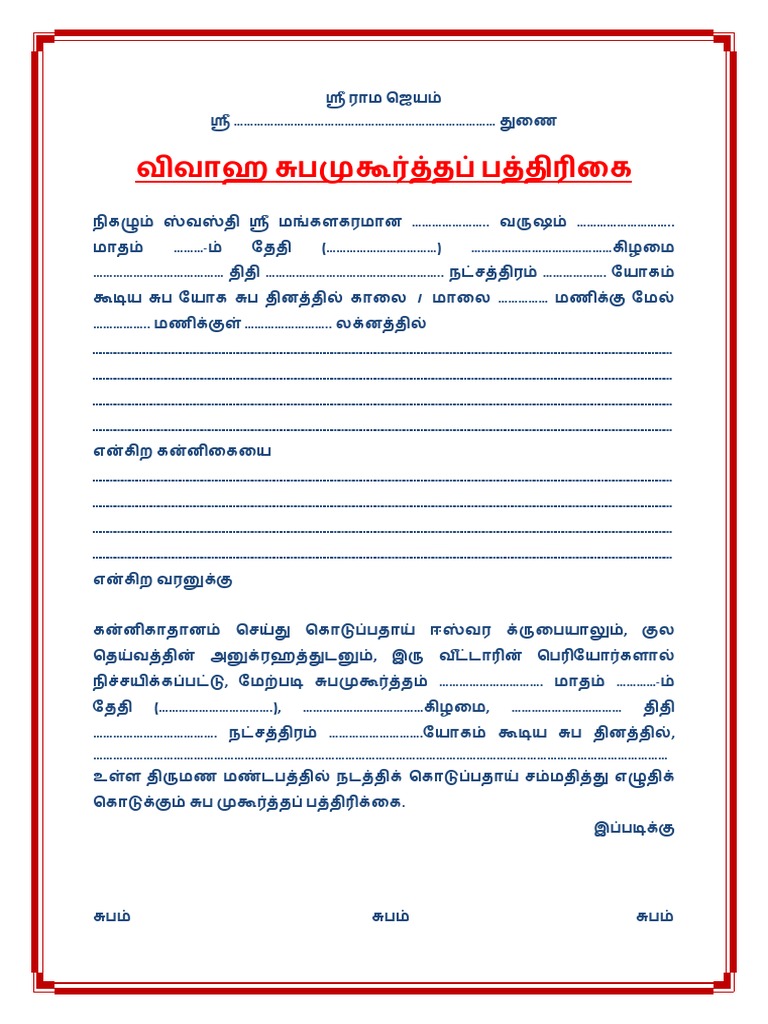 ஸ்ரீ ராம ஜெயம்
ஸ்ரீ ........................................................................ துணை
விவாஹ சுபமுகூர்த்தப் பத்திரிகை
நிகழும் ஸ்வஸ்தி ஸ்ரீ மங்களகரமான ...................... வருஷம் ...........................
மாதம் .........-ம் தேதி (.................................) ..........................................கிழமை
....................................... திதி ..................................................... நட்சத்திரம் ................... யோகம்
கூடிய சுப யோக சுப தினத்தில் காலை / மாலை ............... மணிக்கு மேல்
................. மணிக்குள் .......................... லக்னத்தில்
....................................................................................................
....................................................................................................
....................................................................................................
....................................................................................................
என்கிற கன்னிகையை
....................................................................................................
....................................................................................................
....................................................................................................
....................................................................................................
என்கிற வரனுக்கு
கன்னிகாதானம் செய்து கொடுப்பதாய் ஈஸ்வர க்ருபையாலும், குல
தெய்வத்தின் அனுக்ரஹத்துடனும், இரு வீட்டாரின் பெரியோர்களால்
நிச்சயிக்கப்பட்டு, மேற்படி சுபமுகூர்த்தம் ............................... மாதம் ............-ம்
தேதி (..................................), ....................................கிழமை, ................................. திதி
..................................... நட்சத்திரம் ............................யோகம் கூடிய சுப தினத்தில்,
....................................................................................................
உள்ள திருமண மண்டபத்தில் நடத்திக் கொடுப்பதாய் சம்மதித்து எழுதிக்
கொடுக்கும் சுப முகூர்த்தப் பத்திரிக்கை.
இப்படிக்கு
சுபம் சுபம் சுபம்